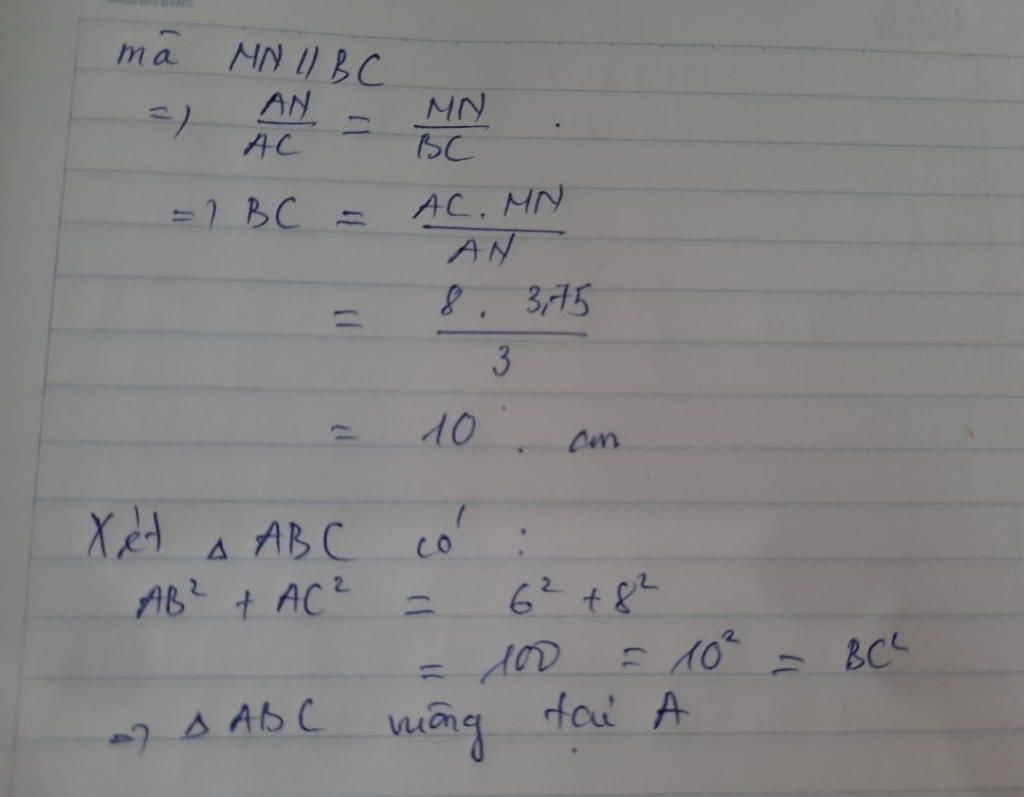 mà MN // BC
=> AN/AC = MN/BC .
=> BC = AC . MN / AN
= 8 . 3,75 / 3
= 10 . cm
Xét Δ ABC có :
AB² + AC² = 6² + 8²
= 100 = 10² = BC²
=> Δ ABC vuông tại A